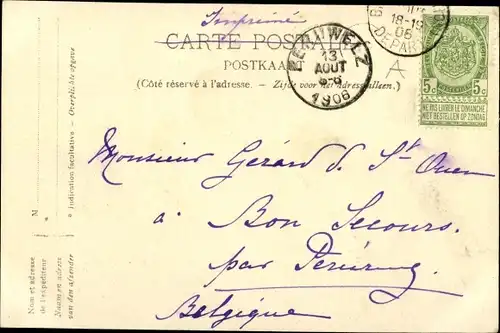 Imprimé
CARTE POSTALE
POSTKAART
(Côté réservé à l'adresse. — Zijde voor het adres alleen.)
PERUWELZ
13
AOUT
1906
18-19
06
DEPART
A
5c 5c
NE PAS LIVRER LE DIMANCHE
NIET BESTELLEN OP ZONDAG
Monsieur Gérard de St Ouen
à Bon Secours.
par
Belgique
M
* Indication facultative — Overplichte opgave
Nom et adresse
de l'expéditeur
Naam en adres
van den afzender